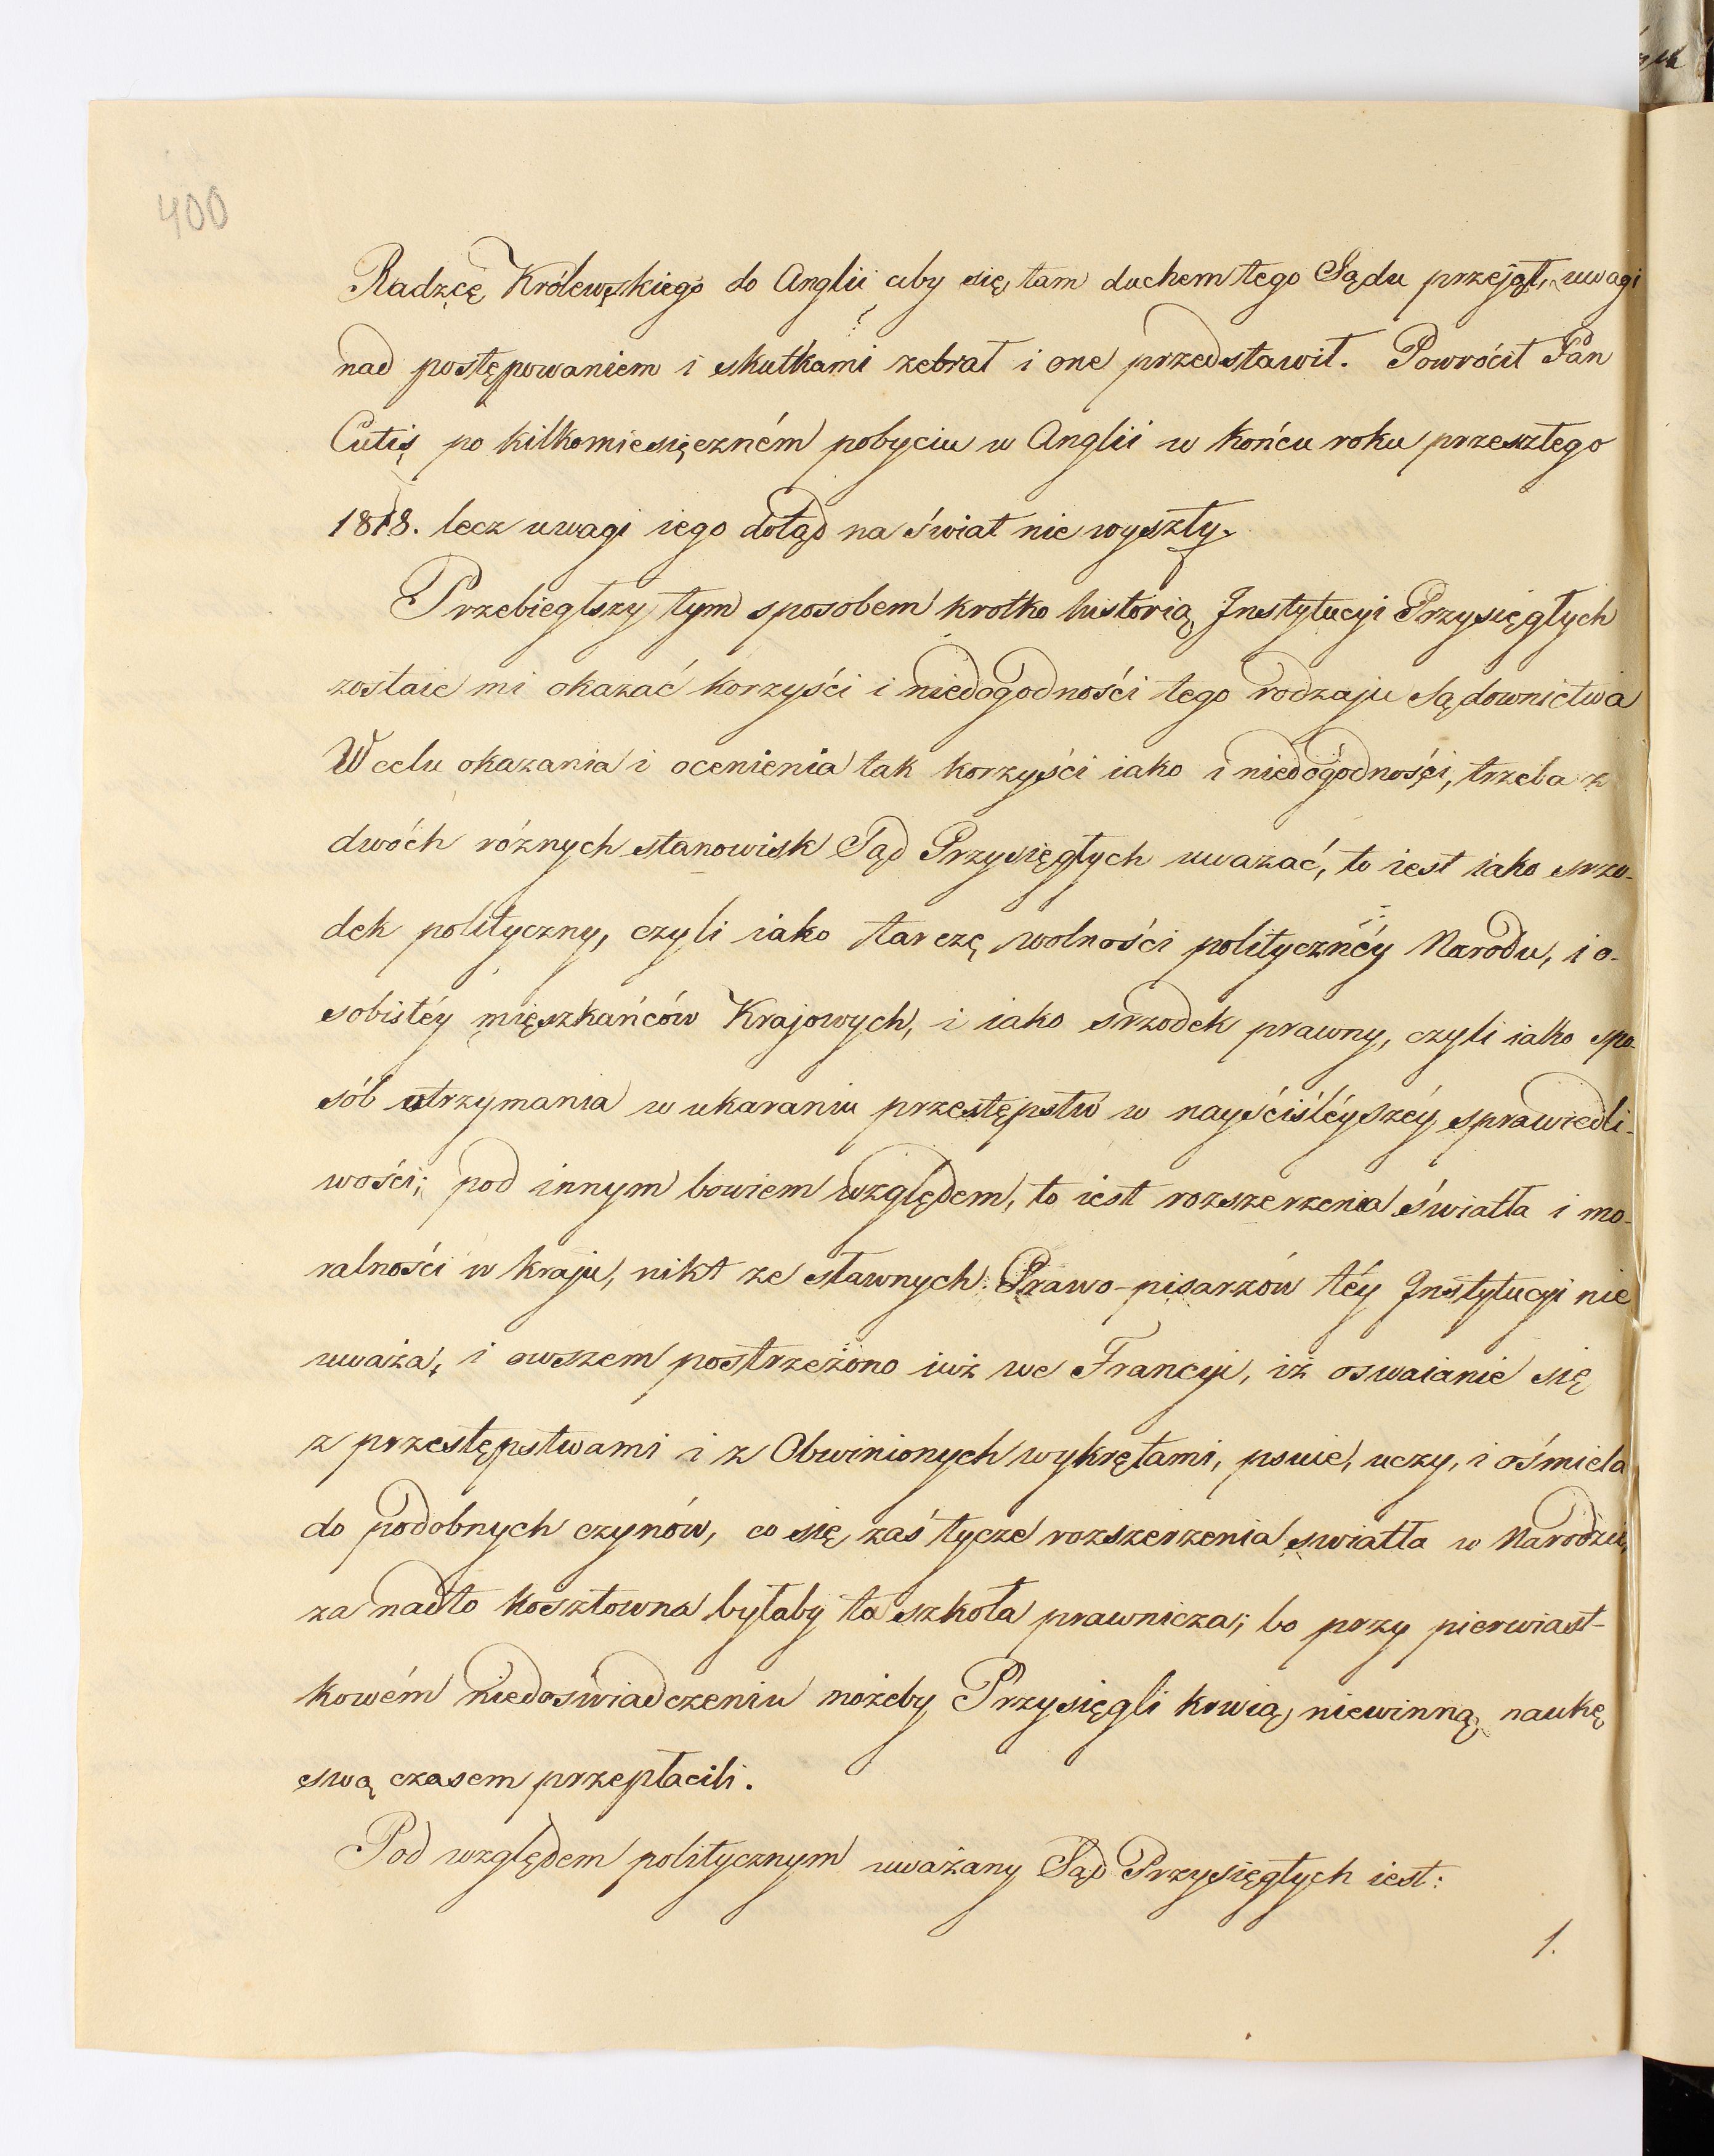 400
Radzcę Królewskiego do Anglii aby się tam duchem tego Sądu przejął, uwagi
nad postępowaniem i skutkami zebrał i one przedstawił. Powrócił Pan
Cutis po kilkomiesięczném pobyciu w Anglii w końcu roku przeszłego
1818. lecz uwagi iego dotąd na świat nie wyszły.
Przebiegłszy tym sposobem krotko historią Instytucyi Przysięgłych
zostaie mi okazać korzyści i niedogodności tego rodzaju Sądownictwa
W celu okazania i ocenienia tak korzyści iako i niedogodności, trzeba z
dwóch róznych stanowisk Sąd Przysięgłych uwazać, to iest iako srzo-
dek polityczny, czyli iako tarczę wolności polityczney Narodu, i o-
sobistéy mięszkańców Krajowych, i iako srzodek prawny, czyli iako spo-
sób utrzymania w ukaraniu przestępstw w nayściśléyszéy sprawiedli-
wości; pod innym bowiem względem, to iest rozszerzenia światła i mo-
ralności w kraju, nikt ze sławnych Prawo-pisarzów téy Instytucyi nie
uważa, i owszem postrzeżono iuż we Francyi, iż oswaianie się
z przestępstwami i z Obwinionych wykrętami, psuie, uczy, i ośmiela
do podobnych czynów, co się zaś tycze rozszerzenia swiatła w Narodzie,
za nadto kosztowna byłaby ta szkoła prawnicza; bo przy pierwiast-
kowém niedoswiadczeniu możeby Przysięgli krwią niewinną naukę
swą czasem przepłacili.
Pod względem politycznym uważany Sąd Przysięgłych iest:
1.